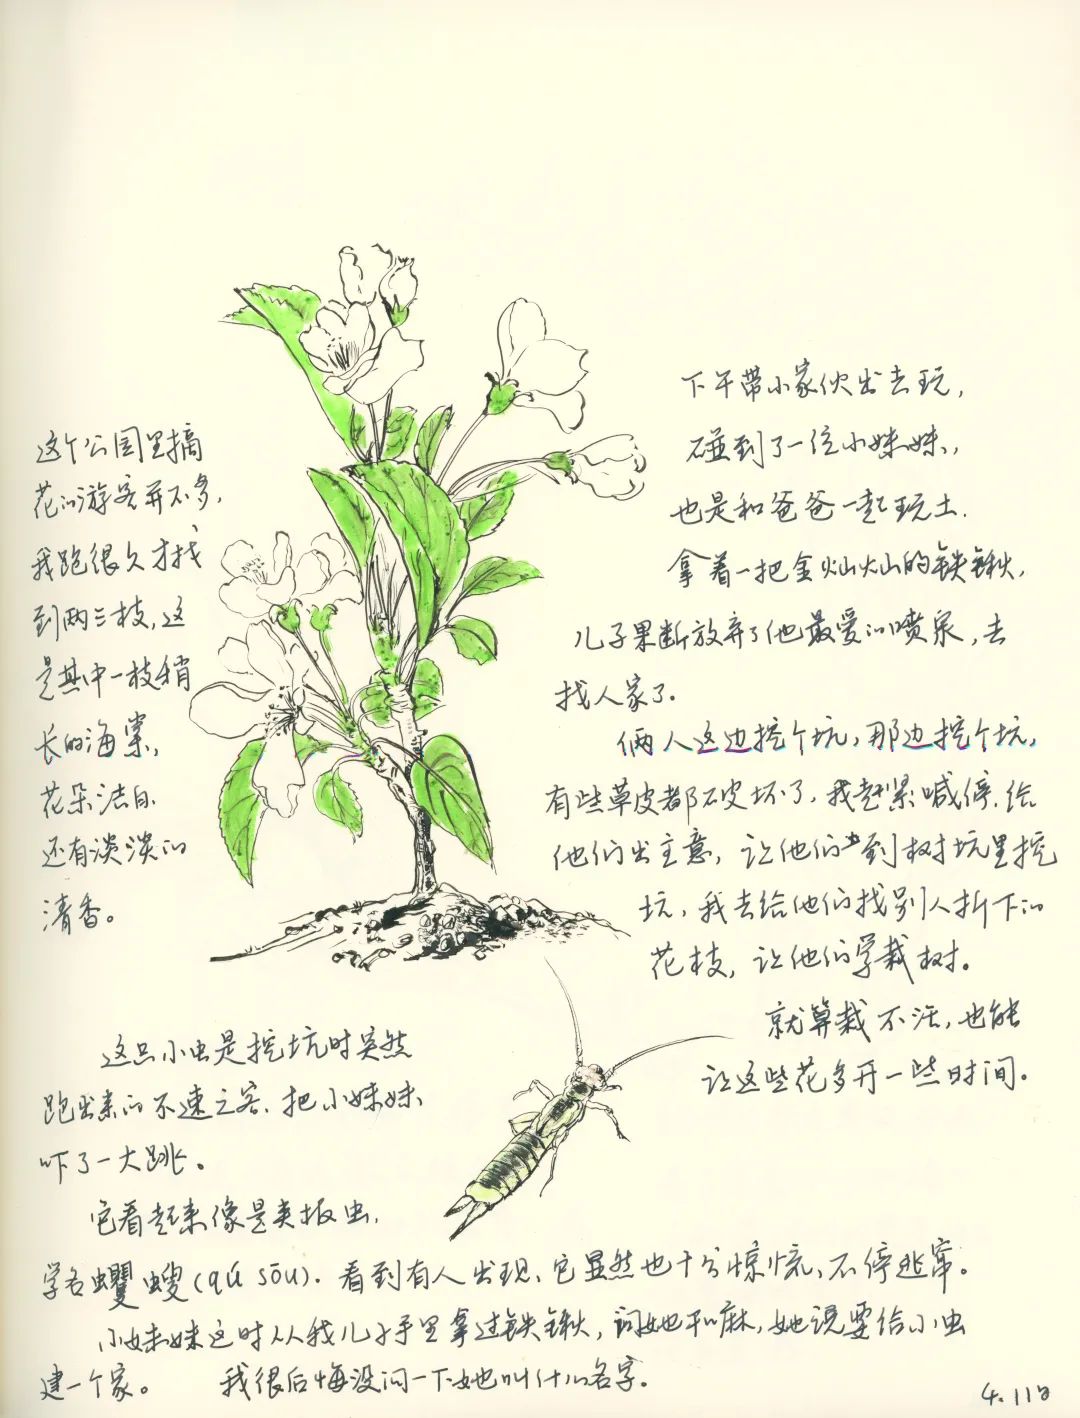 这个公园里摘
花的游客并不多,
我跑很久才找
到两三枝,这
是其中一枝稍
长的海棠,
花朵洁白
还有淡淡的
清香。
下午带小家伙出去玩,
碰到了一位小妹妹,
也是和爸爸一起玩土.
拿着一把金灿灿的铁锹,
儿子果断放弃了他最爱的喷泉,去
找人家了.
俩人这边挖个坑,那边挖个坑,
有些草皮都破坏了,我赶紧喊停.给
他们出主意,让他们到树坑里挖
坑,我去给他们找别人折下的
花枝,让他们学栽树。
就算栽不活,也能
让这些花多开一些时间。
这只小虫是挖坑时突然
跑出来的不速之客.把小妹妹
吓了一大跳。
它看起来像是夹板虫,
学名蠼螋(qú sōu).看到有人出现,它显然也十分惊慌,不停逃窜。
小妹妹这时从我儿子手里拿过铁锹,问她干嘛,她说要给小虫
建一个家。 我很后悔没问一下她叫什么名字.
4.11日